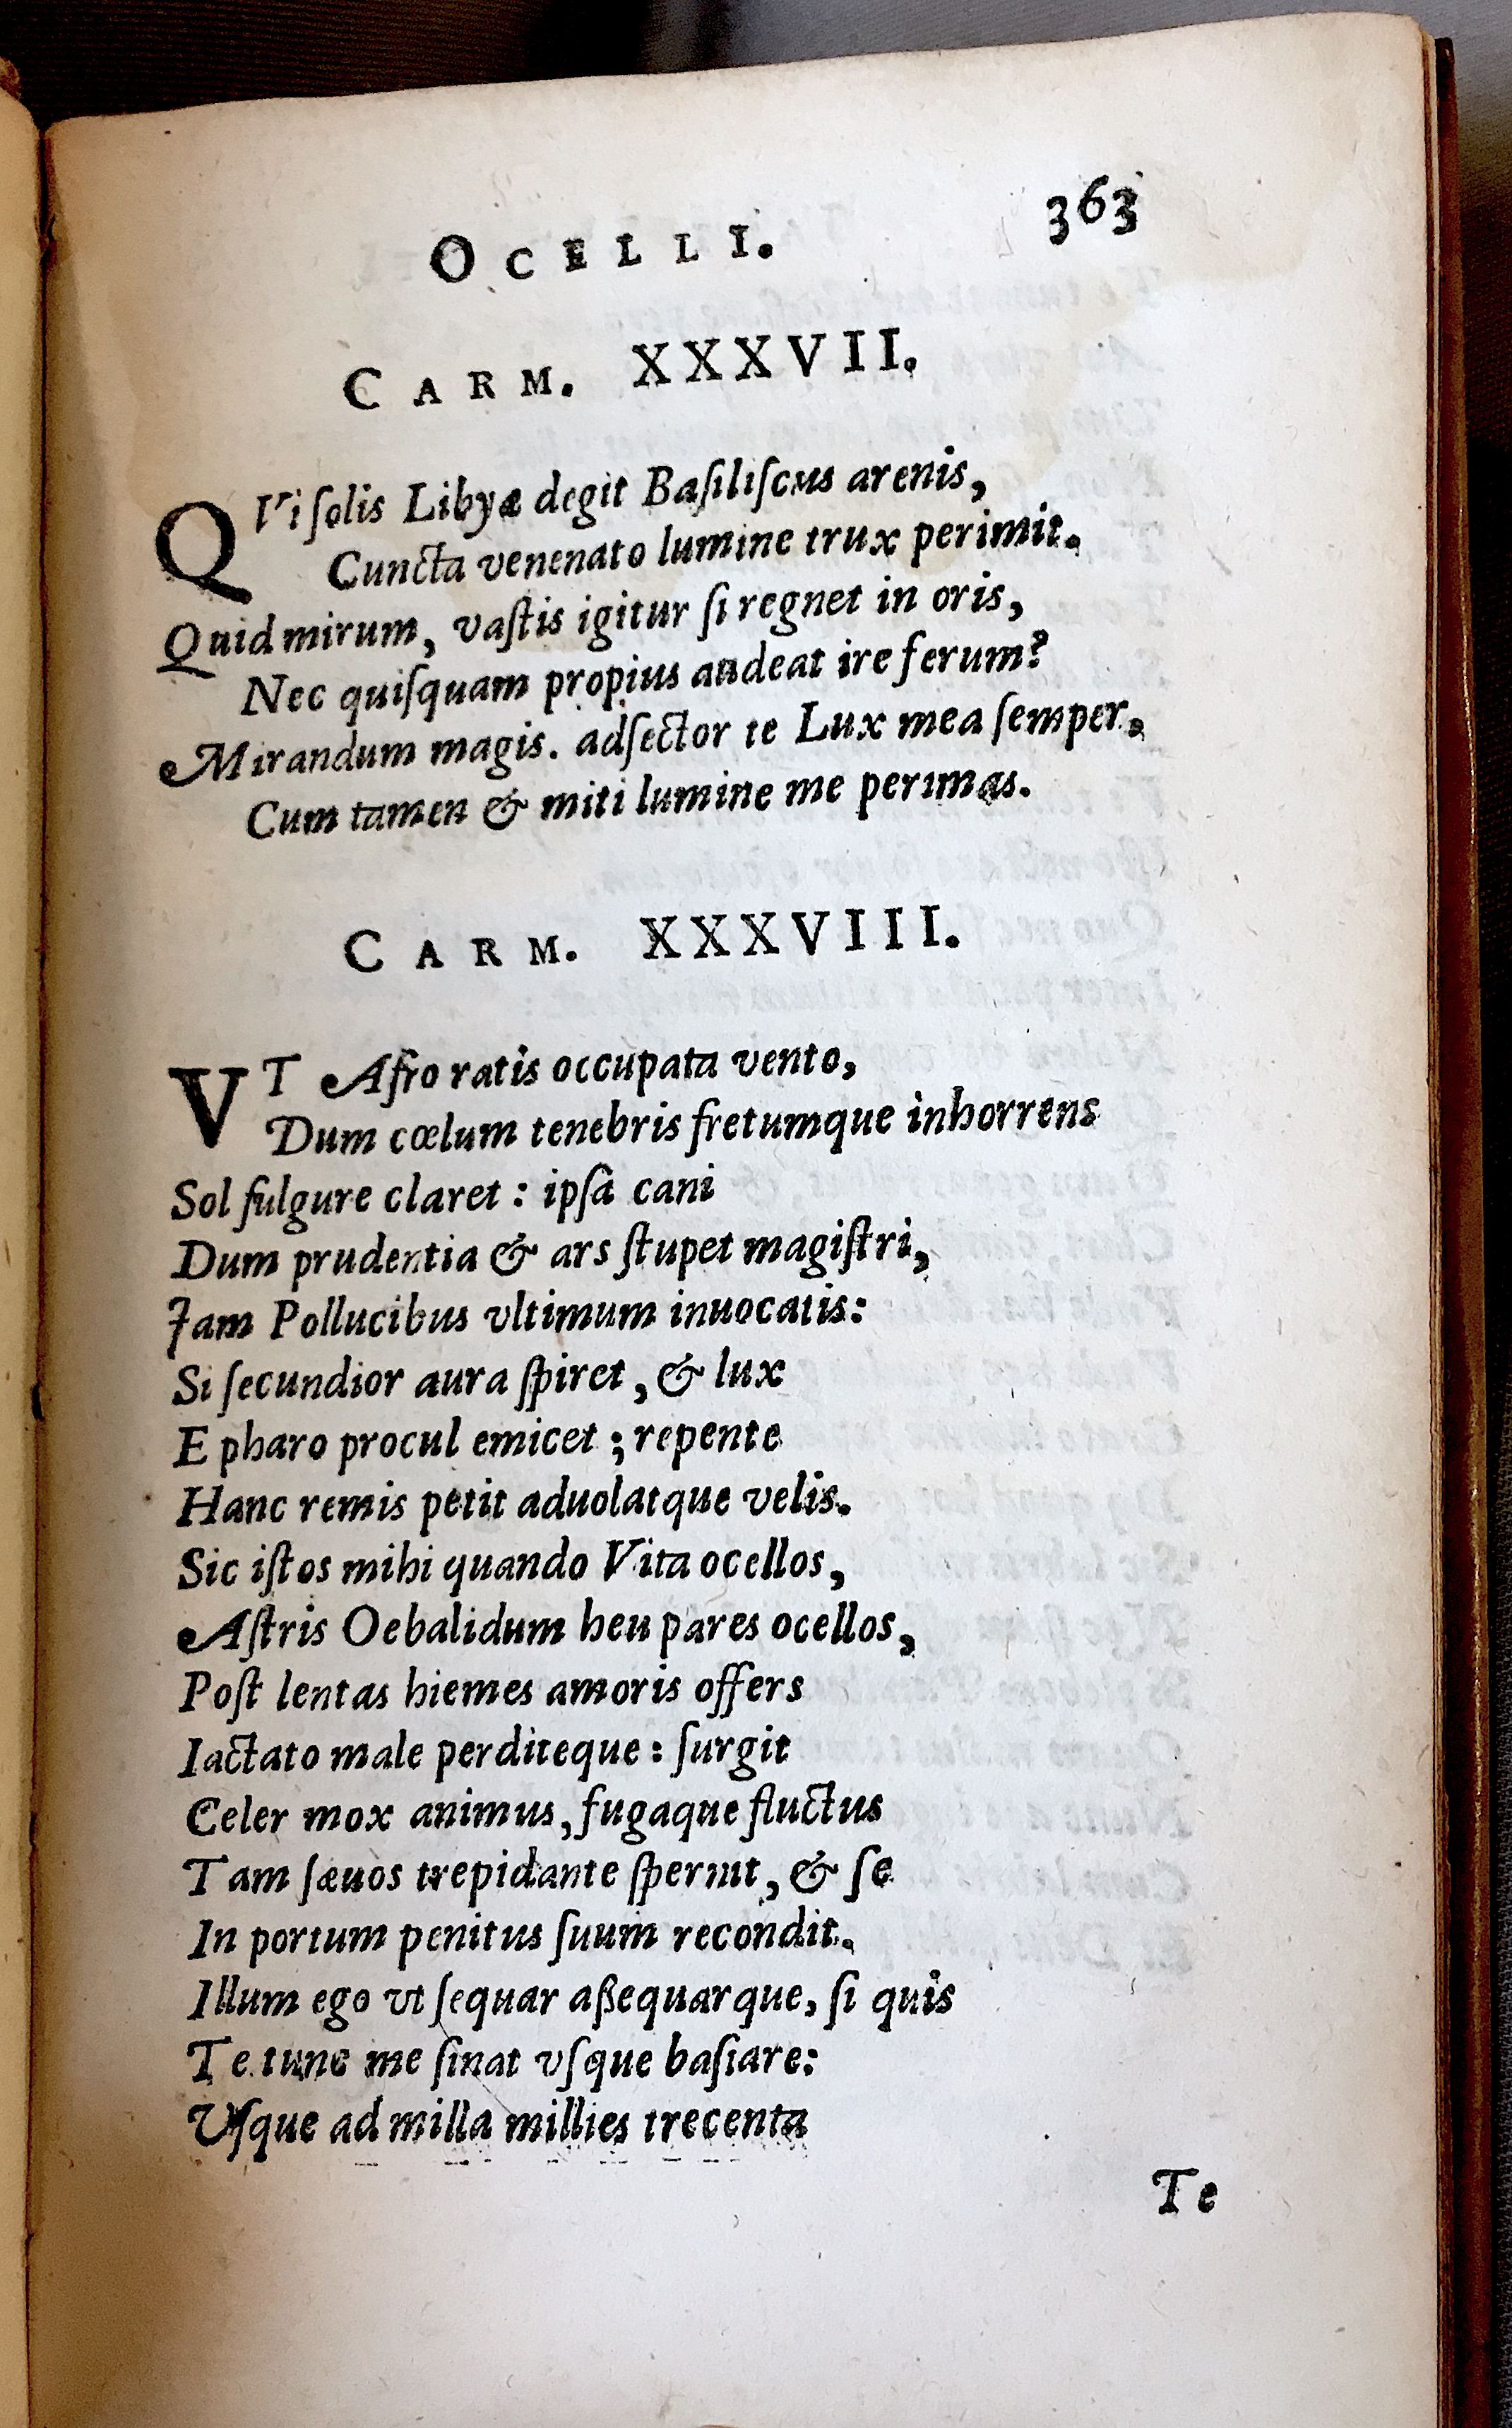 OCELLI. 363
CARM. XXXVII.
QVi ſolis Libyæ degit Baſiliſcus arenis,
Cuncta venenato lumine trux perimit.
Quid mirum, vaſtis igitur ſi regnet in oris,
Nec quiſquam propius audeat ire ferum?
Mirandum magis. adſector te Lux mea ſemper,
Cum tamen & miti lumine me perimas.
CARM. XXXVIII.
VT Afro ratis occupata vento,
Dum cœlum tenebris fretumque inhorrens
Sol fulgure claret : ipſa cani
Dum prudentia & ars ſtupet magiſtri,
Jam Pollucibus vltimum inuocatis:
Si ſecundior aura ſpiret, & lux
E pharo procul emicet ; repente
Hanc remis petit aduolatque velis.
Sic iſtos mihi quando Vita ocellos,
Aſtris Oebalidum heu pares ocellos,
Poſt lentas hiemes amoris offers
Iactato male perditeque : ſurgit
Celer mox animus, fugaque fluctus
Tam ſæuos trepidante ſpernit, & ſe
In portum penitus ſuum recondit.
Illum ego vt ſequar aßequarque, ſi quis
Te tunc me ſinat vſque baſiare:
Vſque ad milla millies trecenta
Te